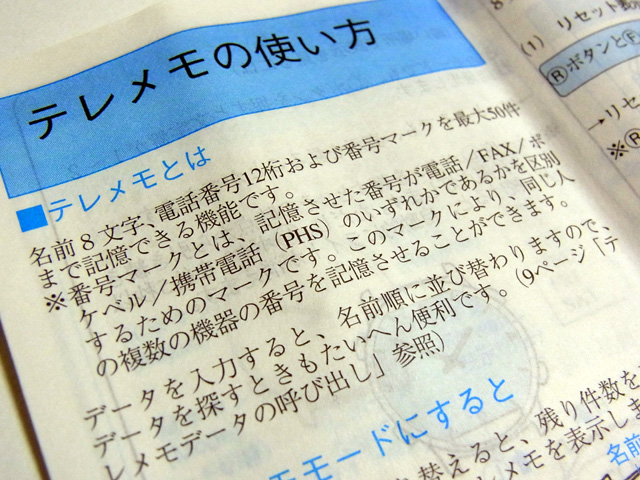 テレメモの使い方
■テレメモとは
名前8文字、電話番号12桁および番号マークを最大50件
まで記憶できる機能です。
※番号マークとは、記憶させた番号が電話/FAX/ポ
ケベル/携帯電話(PHS)のいずれかであるかを区別
するためのマークです。このマークにより、同じ人
の複数の機器の番号を記憶させることができます。
データを入力すると、名前順に並び替わりますので、
データを探すときもたいへん便利です。(9ページ「テ
レメモデータの呼び出し」参照)
モードにすると
替えると、残り件数を
レメモを表示しま
名前
(1) リセット
Ⓡボタンと Ⓕ
→リセ
※Ⓡ